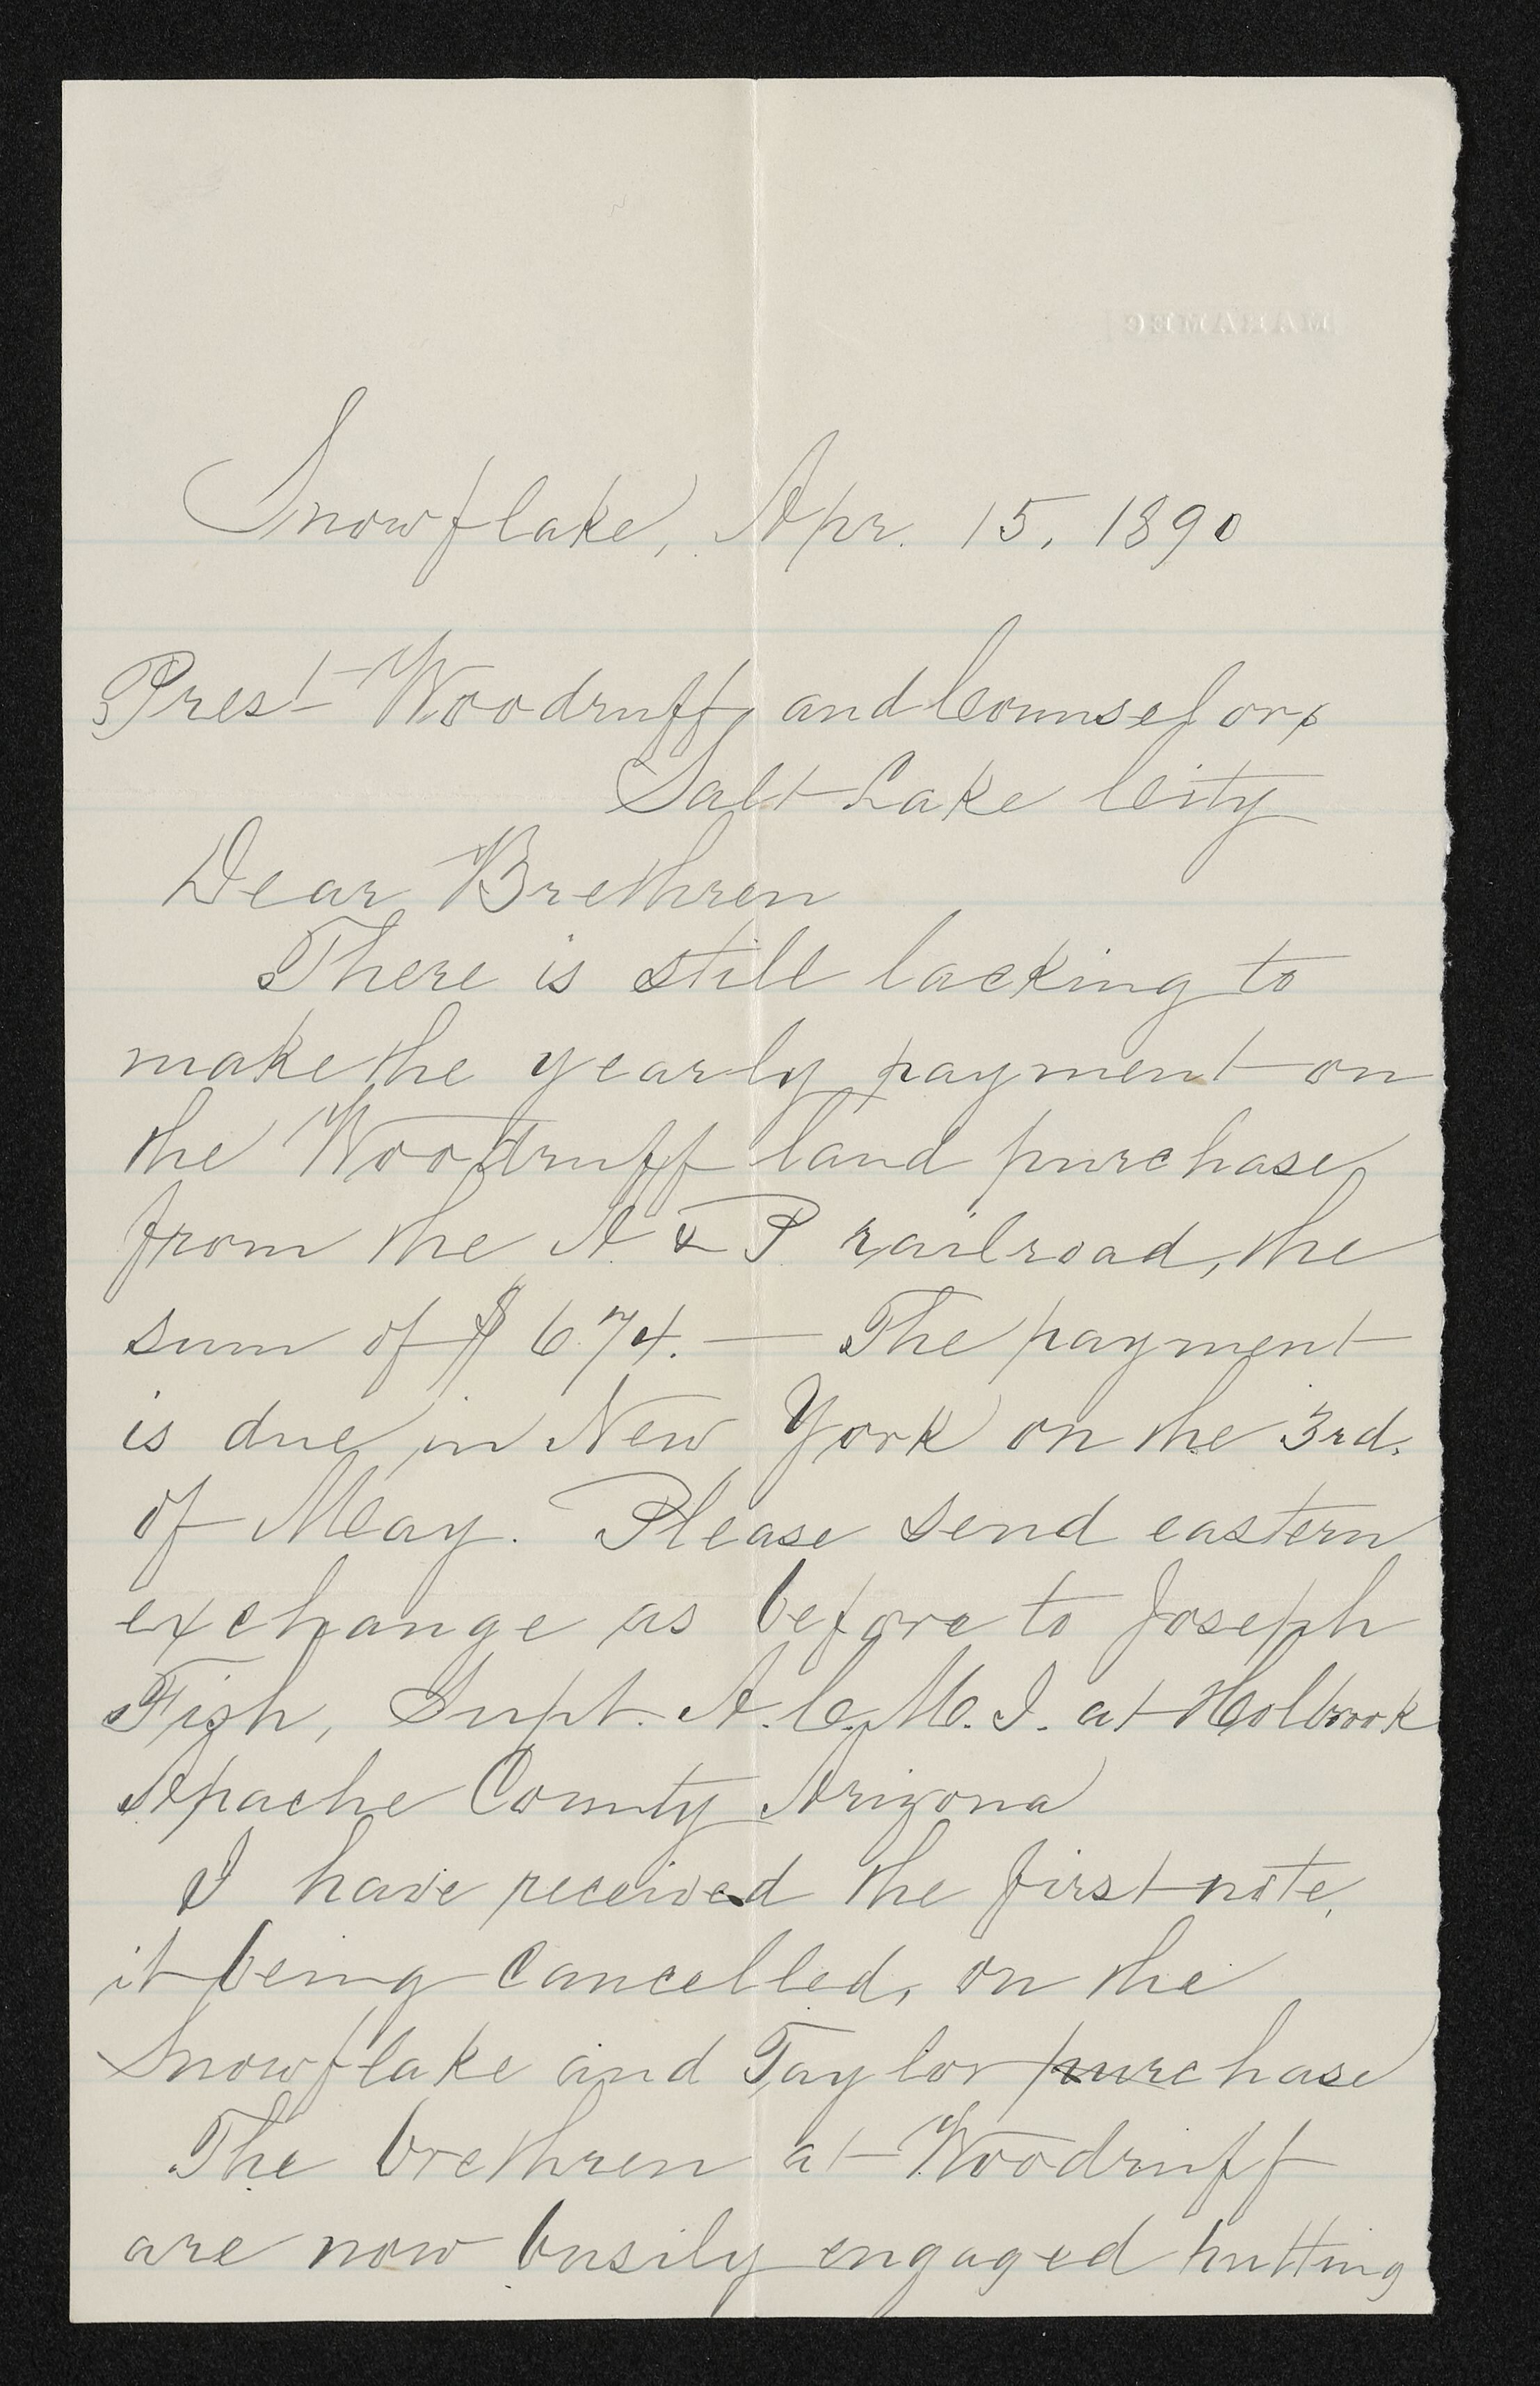 MARAMEC
Snowflake, Apr. 15, 1890
Prest Woodruff, and Counselors
Salt Lake City
Dear Brethren
There is still lacking to
make the yearly payment on
the Woodruff land purchase
from the A & P railroad, the
sum of $674. — The payment
is due in New York on the 3rd.
of May. Please send eastern
exchange as before to Joseph
Fish, Supt. A.C.M.I. at Holbrook
Apache County Arizona
I have received the first note,
it being cancelled, on the
Snowflake and Taylor purchase
The brethren at Woodruff
are now busily engaged putting